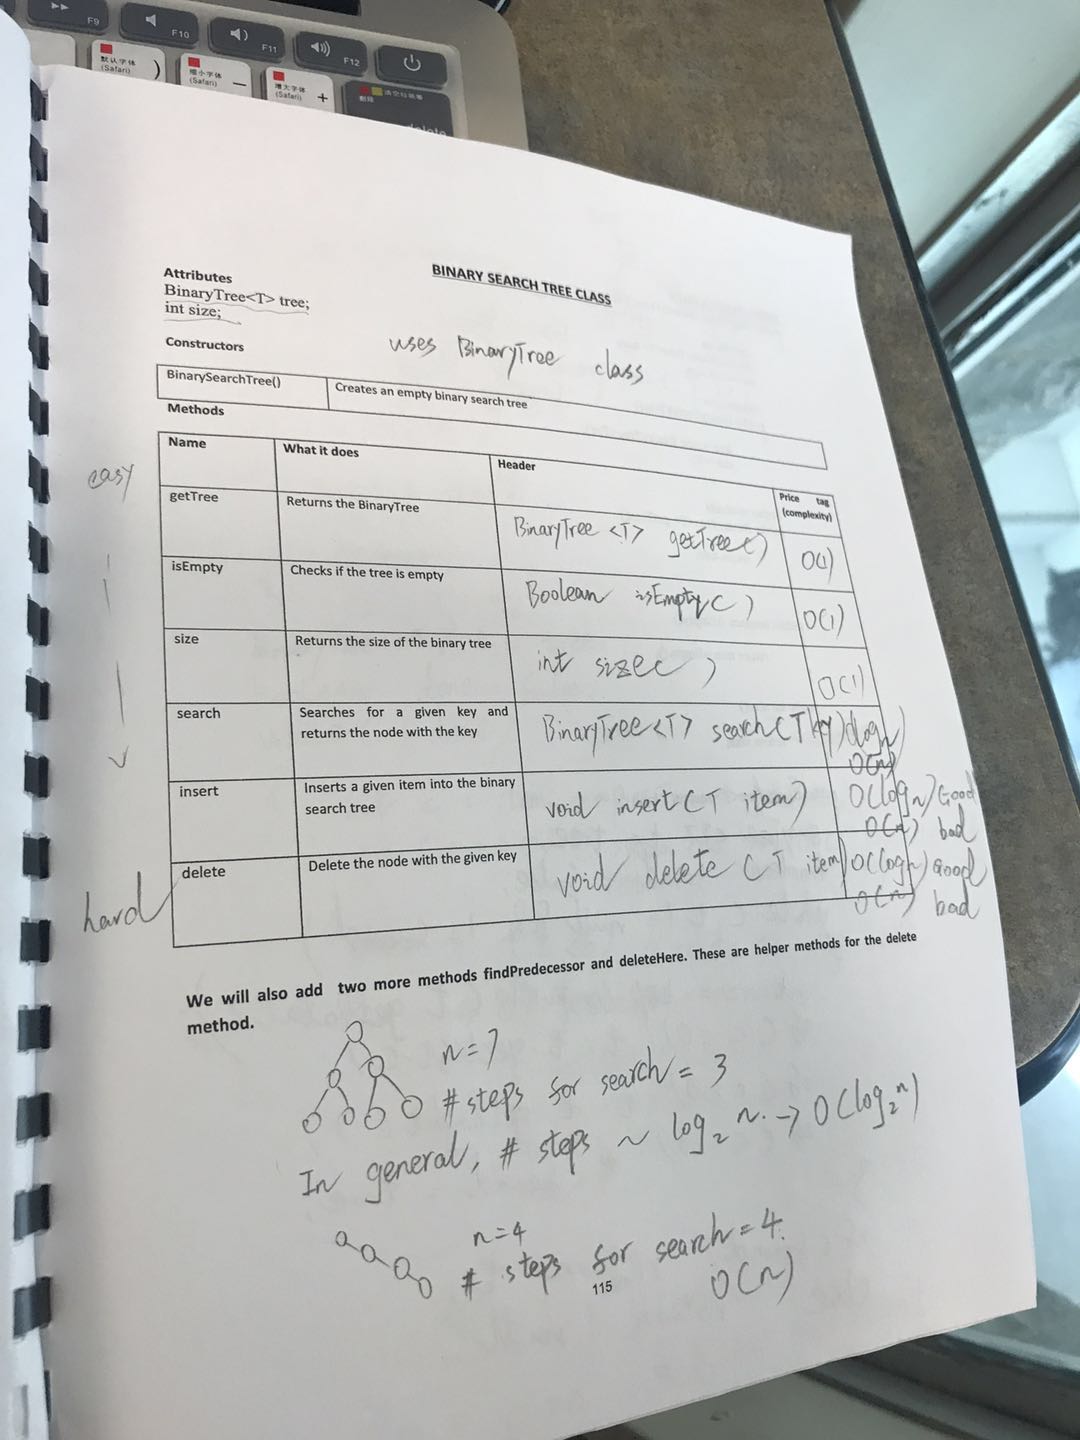 F9
F10
F11
F12
默认字体
(Safari)
)
缩小字体
(Safari)
—
增大字体
(Safari)
+
清空垃圾箱
删除
delete
BINARY SEARCH TREE CLASS
Attributes
BinaryTree<T> tree;
int size;
Constructors
uses BinaryTree class
BinarySearchTree() Creates an empty binary search tree
Methods
easy
Name What it does Header Price tag (complexity)
getTree Returns the BinaryTree BinaryTree <T> getTree() O(1)
isEmpty Checks if the tree is empty Boolean isEmpty( ) O(1)
size Returns the size of the binary tree int size( ) O(1)
search Searches for a given key and BinaryTree<T> search(T key) O(logn)
returns the node with the key O(n)
insert Inserts a given item into the binary void insert(T item) O(logn) Good
search tree O(n) bad
delete Delete the node with the given key void delete (T item) O(logn) Good
O(n) bad
hard
We will also add two more methods findPredecessor and deleteHere. These are helper methods for the delete
method.
n=7
# steps for search = 3
In general, # steps ~ log₂ n. → O(log₂ⁿ)
n=4
# steps for search = 4.
O(n)
115